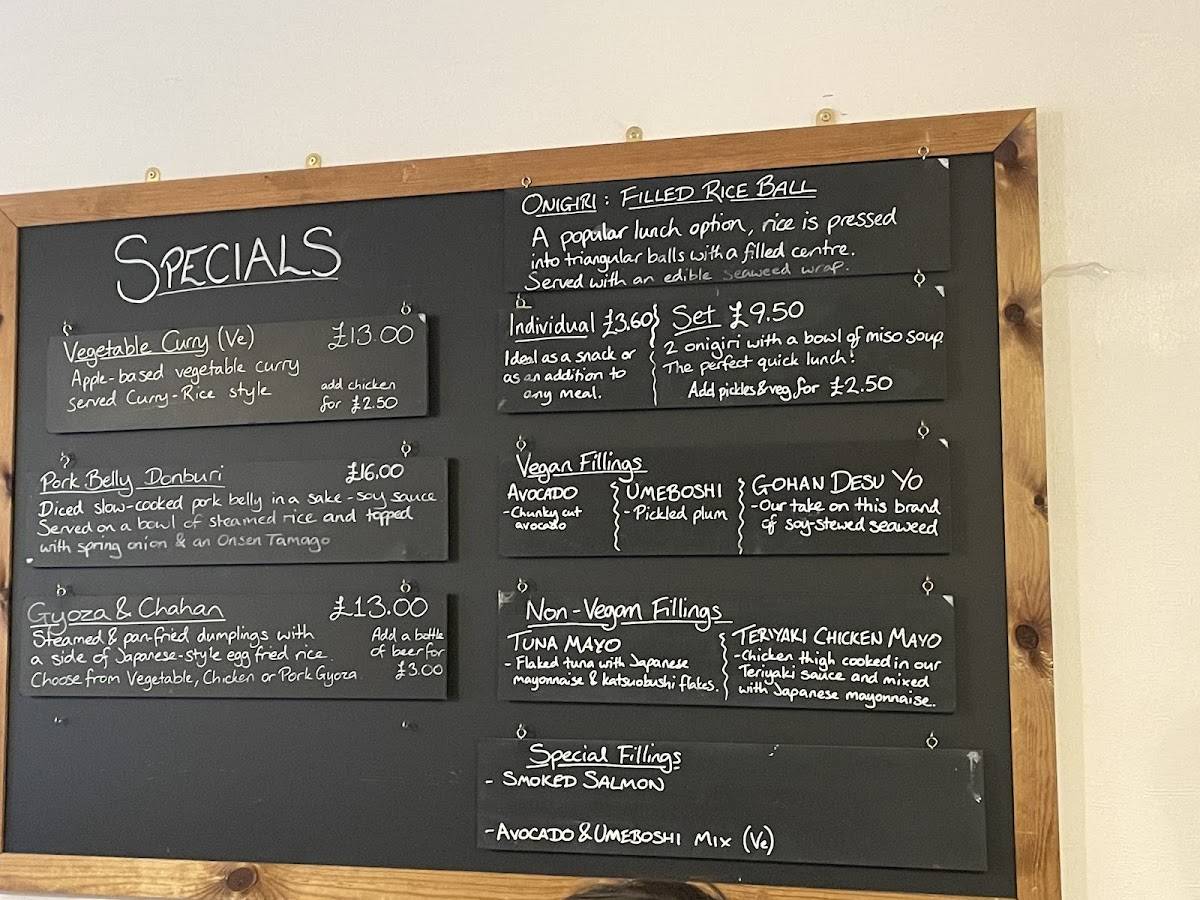 SPECIALS
Vegetable Curry (Ve) £13.00
Apple-based vegetable curry
served Curry-Rice style
add chicken
for £2.50
Pork Belly Donburi £16.00
Diced slow-cooked pork belly in a sake-soy sauce
Served on a bowl of steamed rice and topped
with spring onion & an Onsen Tamago
Gyoza & Chahan £13.00
Steamed & pan-fried dumplings with
a side of Japanese-style egg fried rice
Choose from Vegetable, Chicken or Pork Gyoza
Add a bottle
of beer for
£3.00
ONIGIRI: FILLED RICE BALL
A popular lunch option, rice is pressed
into triangular balls with a filled centre.
Served with an edible seaweed wrap.
Individual £3.60
Ideal as a snack or
as an addition to
any meal.
Set £9.50
2 onigiri with a bowl of miso soup.
The perfect quick lunch!
Add pickles & veg for £2.50
Vegan Fillings
AVOCADO
- Chunky cut
avocado
UMEBOSHI
- Pickled plum
GOHAN DESU YO
- Our take on this brand
of soy-stewed seaweed
Non-Vegan Fillings
TUNA MAYO
- Flaked tuna with Japanese
mayonnaise & katsuobushi flakes.
TERIYAKI CHICKEN MAYO
- Chicken thigh cooked in our
Teriyaki sauce and mixed
with Japanese mayonnaise.
Special Fillings
- SMOKED SALMON
- AVOCADO & UMEBOSHI MIX (Ve)